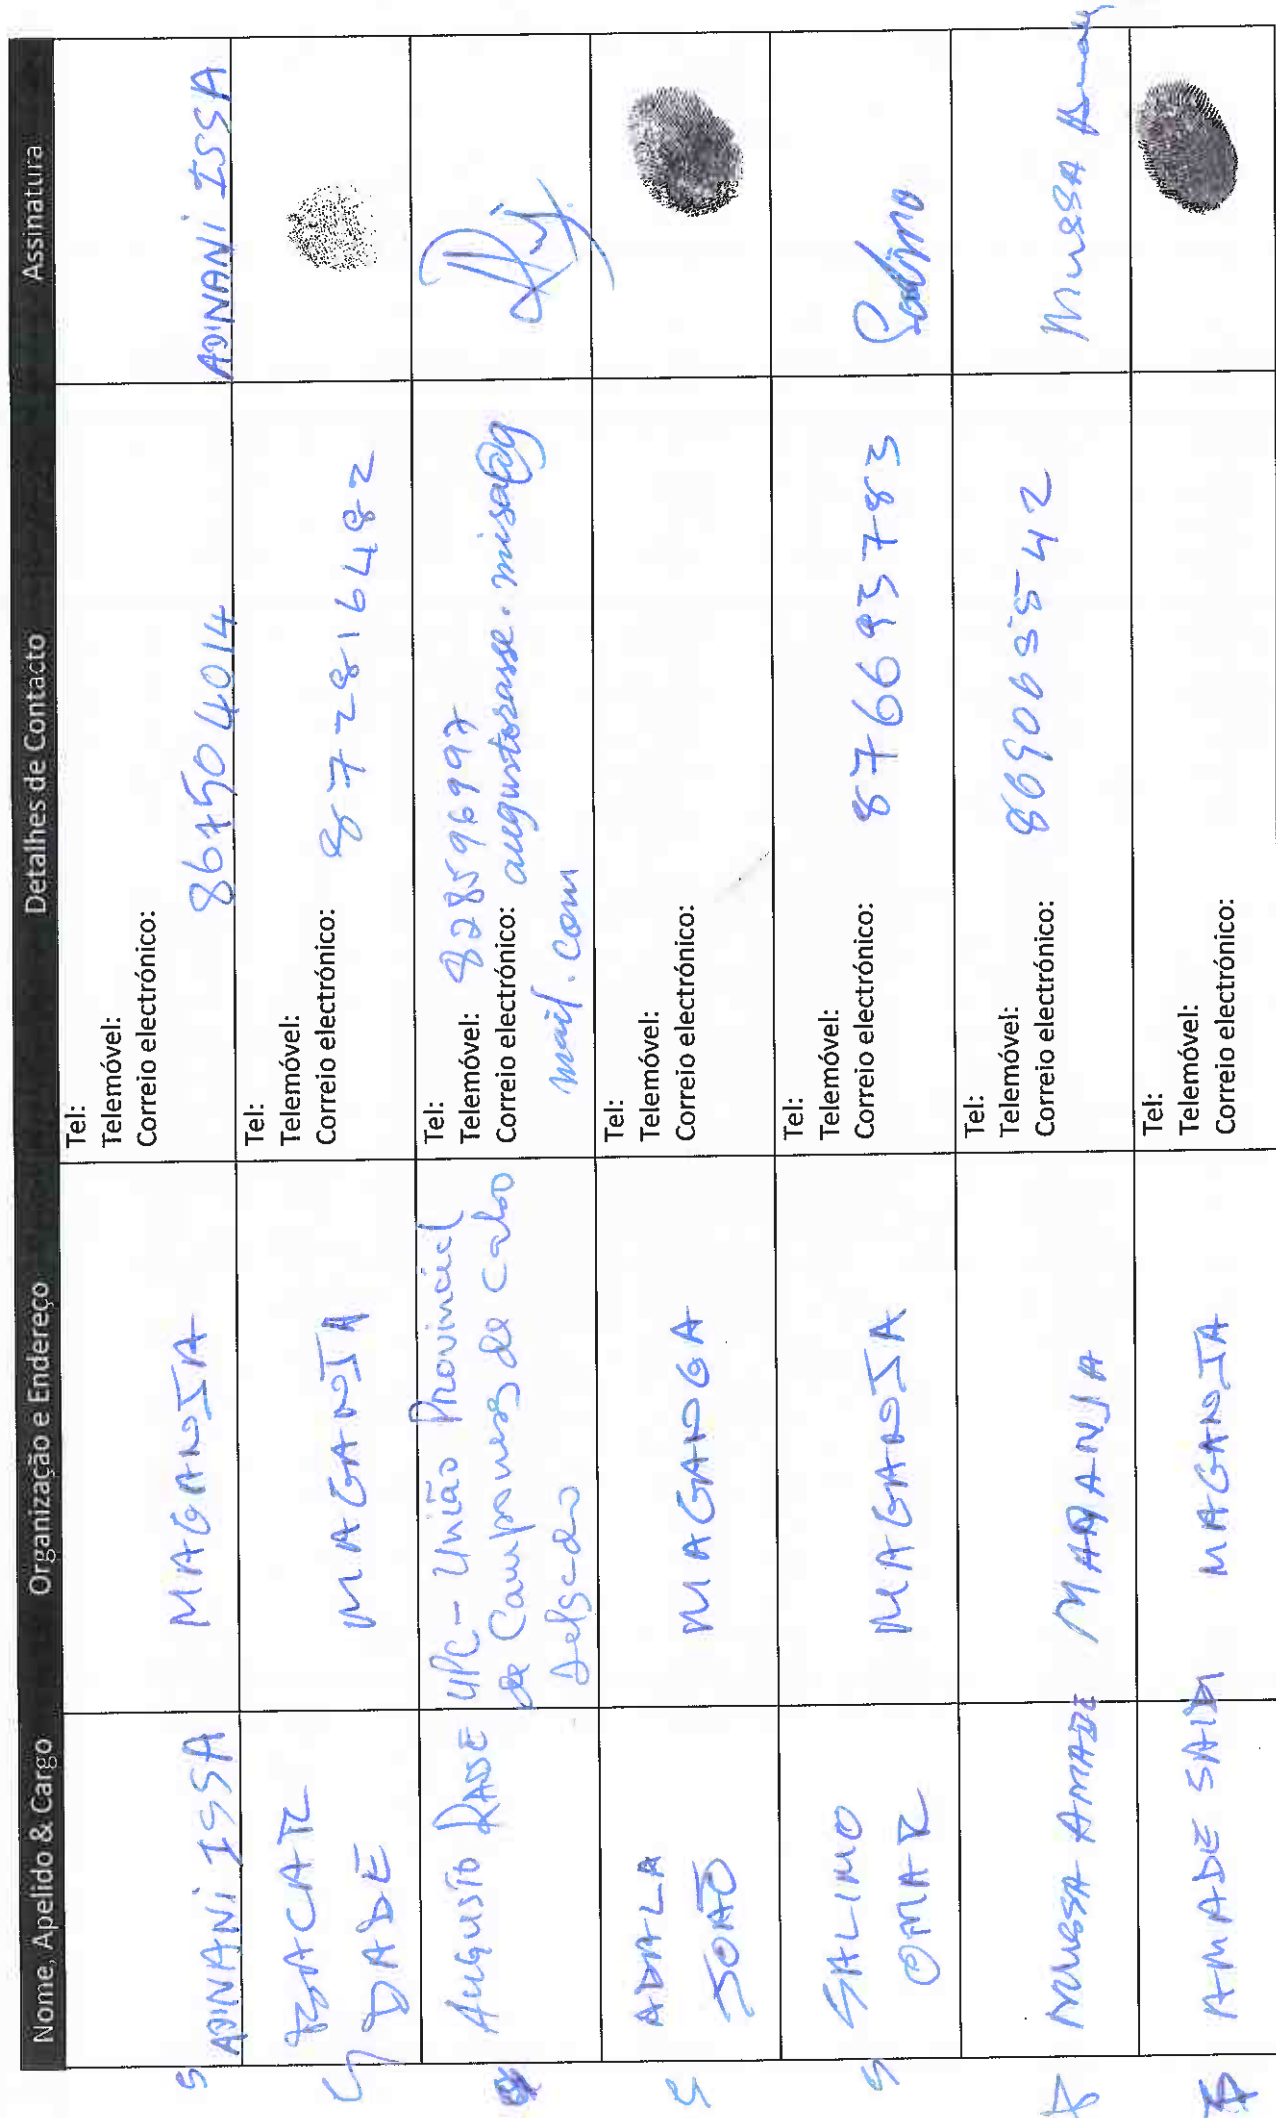 Nome, Apelido & Cargo Organização e Endereço Detalhes de Contacto Assinatura
S ADINANI ISSA
MAGANJA
Tel:
Telemóvel:
Correio electrónico:
867504014
ADINANI ISSA
BACAR
DADE
MAGANJA
Tel:
Telemóvel:
Correio electrónico: 872816482
AUGUSTO RASSE
UPC - União Provincial
de Camponeses de Cabo
Delgado
Tel:
Telemóvel: 828596997
Correio electrónico: augustorasse.misa@g
mail.com
S ADALA
JOAÕ
MAGANGA
Tel:
Telemóvel:
Correio electrónico:
S SALIMO
OMAR
MAGANJA
Tel:
Telemóvel:
Correio electrónico: 876693783
Salimo
MUSSA AMADE
Tel:
Telemóvel:
Correio electrónico:
MUSSA
AMADE SAIDI
MAGANJA
Tel:
Telemóvel:
Correio electrónico: